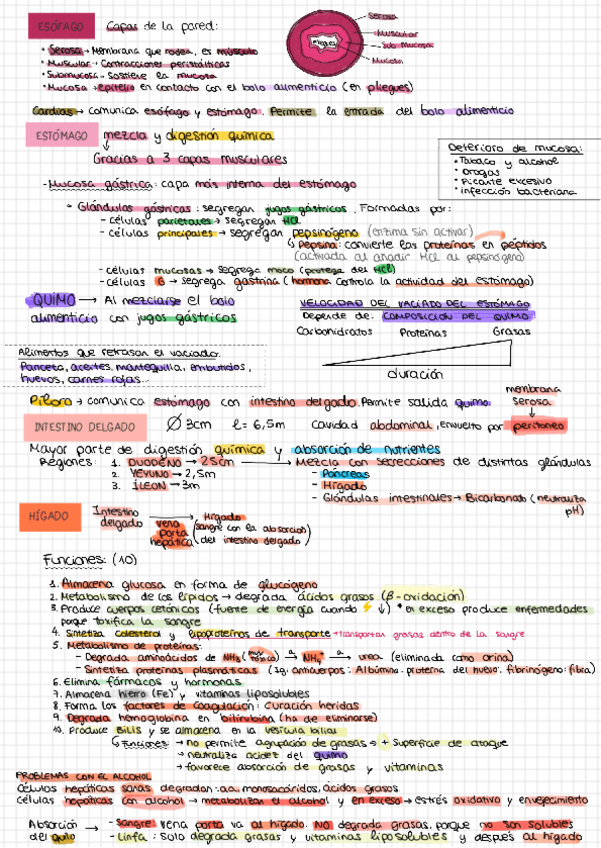 ESÓFAGO
Capas de la pared:
Serosa
Muscular
Sub Mucosa
Mucosa
Pliegues
• Serosa → Membrana que rodea, es músculo
• Muscular → Contracciones peristálticas
• Submucosa → Sostiene la mucosa
• Mucosa → epitelio en contacto con el bolo alimenticio (en pliegues)
Cardias → comunica esófago y estómago. Permite la entrada del bolo alimenticio
ESTÓMAGO
mezcla y digestión química
Gracias a 3 capas musculares
Deterioro de mucosa:
• Tabaco y alcohol
• Drogas
• Picante excesivo
• Infección bacteriana
- Mucosa gástrica: capa más interna del estómago
• Glándulas gástricas: segregan jugos gástricos. Formadas por:
- células parietales → segregan HCl
- células principales → segregan pepsinógeno (enzima sin activar)
↳ Pepsina: convierte las proteínas en péptidos
(activada al añadir HCl al pepsinógeno)
- células mucosas → segrega moco (protege del HCl)
- células G → segrega gastrina (hormona controla la actividad del estómago)
QUIMO → Al mezclarse el bolo
alimenticio con jugos gástricos
VELOCIDAD DEL VACIADO DEL ESTÓMAGO
Depende de: COMPOSICIÓN DEL QUIMO
Carbohidratos Proteínas Grasas
duración
Alimentos que retrasan el vaciado:
Panceta, aceites, mantequilla, embutidos,
huevos, carnes rojas...
Píloro → comunica estómago con intestino delgado. Permite salida quimo
membrana
serosa
↓
INTESTINO DELGADO
Ø 3cm l= 6,5m Cavidad abdominal, envuelto por peritoneo
Mayor parte de digestión química y absorción de nutrientes
Regiones: 1. DUODENO → 25cm → Mezcla con secreciones de distintas glándulas
2. YEYUNO → 2,5m
3. ÍLEON → 3m
- Páncreas
- Hígado
- Glándulas intestinales → Bicarbonato (neutraliza
pH)
HÍGADO
Intestino
delgado
vena
porta
hepática
→ Hígado
(sangre con la absorción
del intestino delgado)
Funciones: (10)
1. Almacena glucosa en forma de glucógeno
2. Metabolismo de los lípidos → degrada ácidos grasos (β-oxidación)
3. Produce cuerpos cetónicos (fuente de energía cuando ⚡ ↓) * en exceso produce enfermedades
porque toxifica la sangre
4. Sintetiza colesterol y lipoproteínas de transporte → transportan grasas dentro de la sangre
5. Metabolismo de proteínas:
- Degrada aminoácidos de NH3 (muy tóxico) → NH4+ → urea (eliminada como orina)
- Sintetiza proteínas plasmáticas (Ig: anticuerpos; Albúmina: proteína del huevo; fibrinógeno: fibra)
6. Elimina fármacos y hormonas
7. Almacena hierro (Fe) y vitaminas liposolubles
8. Forma los factores de coagulación: Curación heridas
9. Degrada hemoglobina en bilirrubina (ha de eliminarse)
10. Produce Bilis y se almacena en la vesícula biliar
↳ Funciones: → no permite agrupación de grasas → + superficie de ataque
→ neutraliza acidez del quimo
→ favorece absorción de grasas y vitaminas
PROBLEMAS CON EL ALCOHOL
Células hepáticas sanas degradan: a.a, monosacáridos, ácidos grasos
Células hepáticas con alcohol → metabolizan el alcohol y en exceso → estrés oxidativo y envejecimiento
Absorción
del quilo
→ - Sangre: vena porta va al hígado. No degrada grasas, porque no son solubles
- Linfa: solo degrada grasas y vitaminas liposolubles y después al hígado